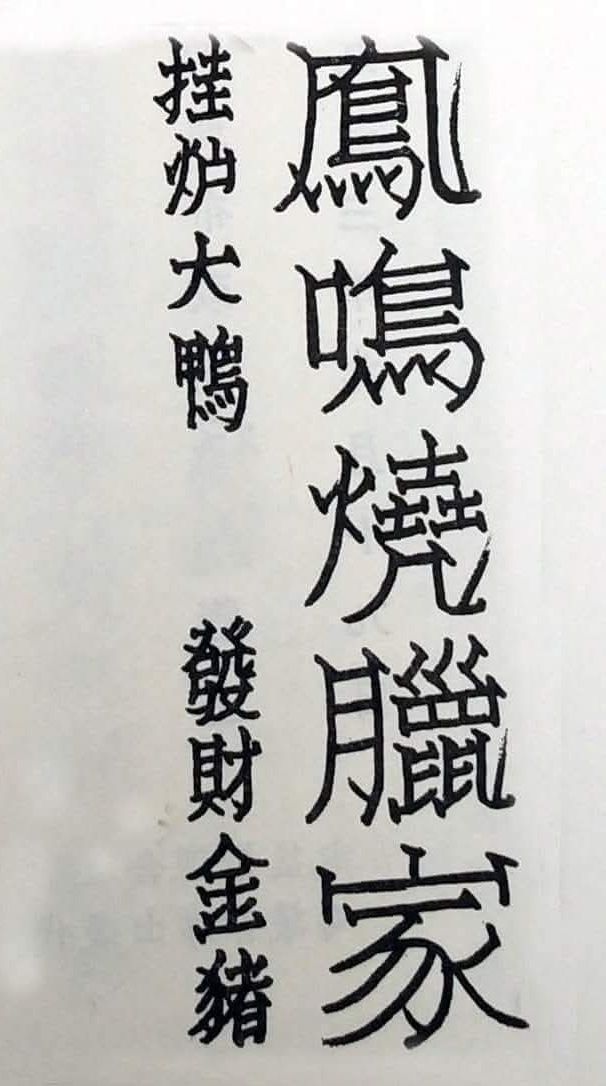 鳳鳴燒臘家
挂炉大鴨 發財金豬